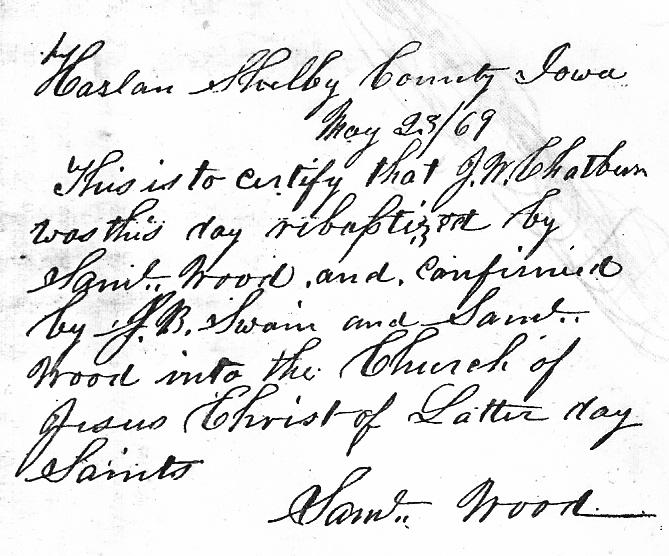 Harlan Shelby County Iowa
May 23/69
This is to certify that J. W. Chatburn
was this day ribaptized by
Saml. Wood, and, confirmed
by J. B. Swain and Saml.
Wood into the Church of
Jesus Christ of Latter day
Saints
Saml. Wood